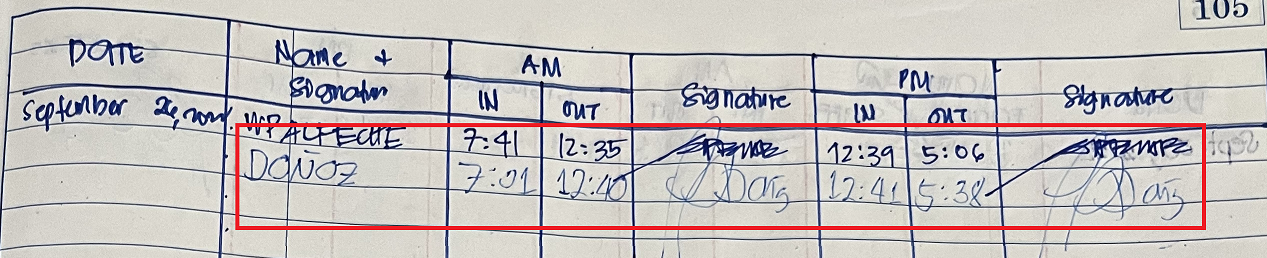 105
DATE Name & Signature AM IN OUT Signature PM IN OUT Signature
September 26,
WP ALFECHE 7:41 12:35 12:39 5:06
DOÑOZ 7:01 12:40 12:41 5:38